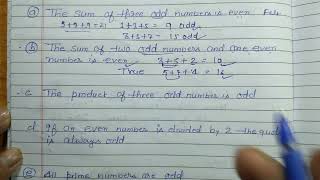 a) The sum of three odd numbers is even. False
3+9+9=21 1+3+5= 9 odd
3+5+7 - 15 odd
(b) The sum of two odd numbers and one even
number is even. 3+5+2 = 10
True 5+9+4 = 18
c The product of three odd number is odd
d. If an even number is divided by 2 the
is always odd
e All prime numbers are odd